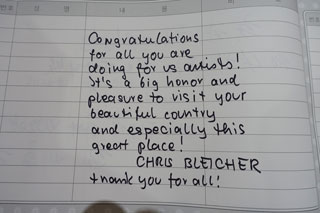 Congratulations
for all you are
doing for us artists!
It's a big honor and
pleasure to visit your
beautiful country
and especially this
great place!
CHRIS BLEICHER
thank you for all!